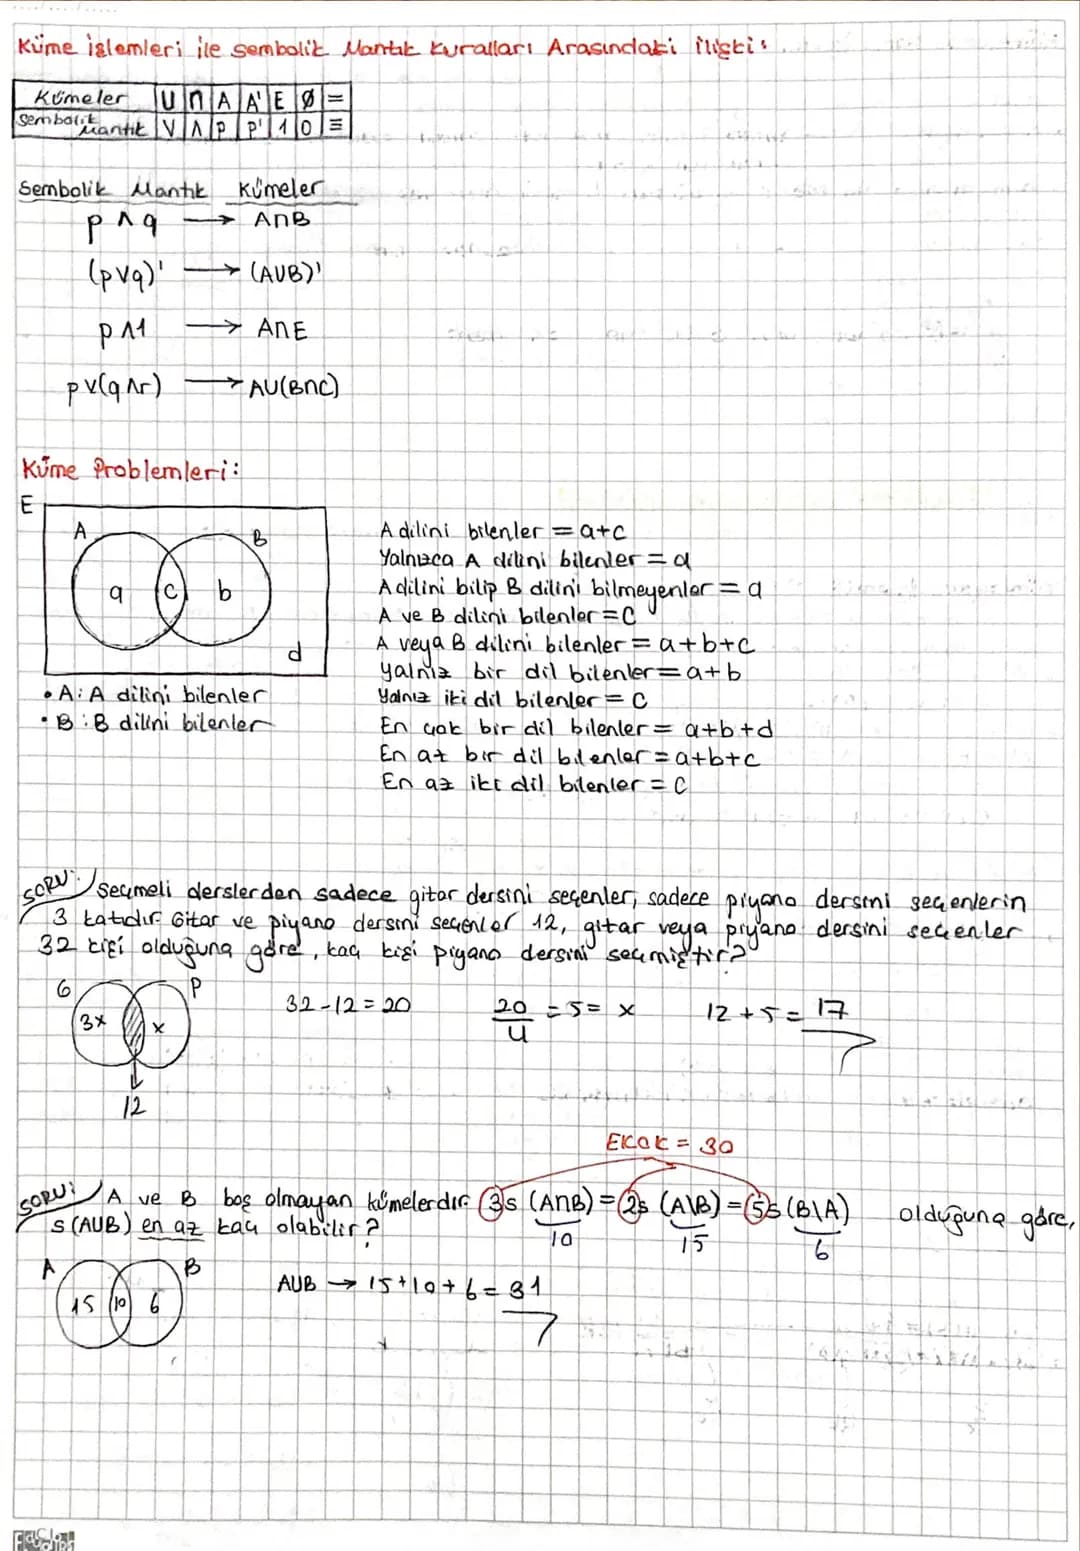 Küme işlemleri ile sembolik Mantık Kuralları Arasındaki İlişki:
Kümeler U ∩ A A' E Ø =
Sembolik Mantık V Λ P P' 1 0 ≡
Sembolik Mantık Kümeler
p ∧ q → A∩B
(p∨q)' → (AUB)'
p∧1 → A∩E
p∨(q∧r) → AU(B∩C)
Küme Problemleri:
E
A B
a c b
d
• A: A dilini bilenler
• B: B dilini bilenler
A dilini bilenler = a+c
Yalnızca A dilini bilenler = a
A dilini bilip B dilini bilmeyenler = a
A ve B dilini bilenler = C
A veya B dilini bilenler = a+b+c
yalnız bir dil bilenler = a+b
Yalnız iki dil bilenler = C
En çok bir dil bilenler = a+b+d
En az bir dil bilenler = a+b+c
En az iki dil bilenler = C
SORU: Seçmeli derslerden sadece gitar dersini seçenler, sadece piyano dersini seçenlerin
3 katıdır. Gitar ve piyano dersini seçenler 12, gitar veya piyano dersini seçenler
32 kişi olduğuna göre, kaç kişi piyano dersini seçmiştir?
G P
3x x
12
32-12=20 20/4 = 5 = x 12+5 = 17
EKOK = 30
SORU: A ve B boş olmayan kümelerdir. 3s (A∩B) = 2s (A\B) = 5s (B\A) olduğuna göre,
10 15 6
s(AUB) en az kaç olabilir?
A B
15 10 6
AUB → 15+10+6 = 31